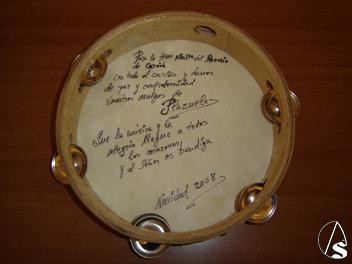 Para la Hdad Nuestra del Rosario
de
con todo el cariño y deseos
de paz y confraternidad
Vuestros amigos de
Plazuela
Que la música y la
alegría llegue a todos
los corazones,
y el Señor os bendiga
Navidad 2008